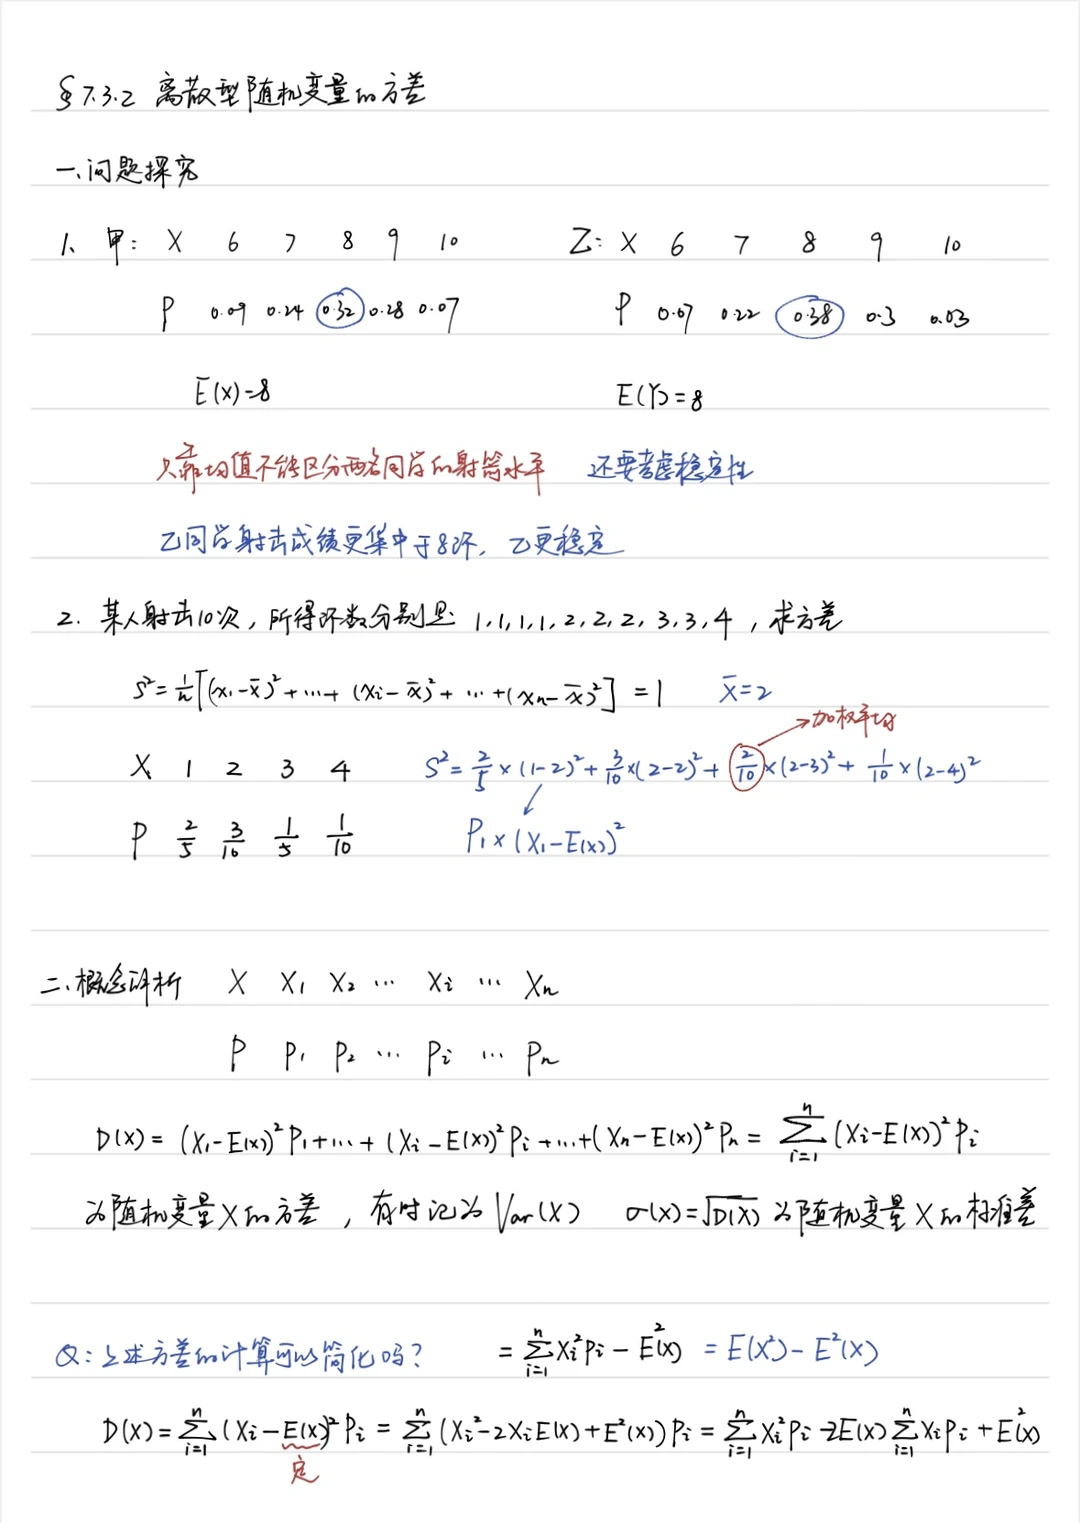 §7.3.2 离散型随机变量的方差
一、问题探究
1、甲: X 6 7 8 9 10 乙: X 6 7 8 9 10
P 0.09 0.24 0.32 0.28 0.07 P 0.07 0.22 0.38 0.3 0.03
E(X)=8 E(Y)=8
只靠均值不能区分两名同学的射箭水平 还要考虑稳定性
乙同学射击成绩更集中于8环, 乙更稳定
2. 某人射击10次, 所得环数分别是 1,1,1,1,2,2,2,3,3,4, 求方差
S²=1/n[(x₁-x̄)²+…+(xᵢ-x̄)²+…+(xₙ-x̄)²]=1 x̄=2
加权平均
X 1 2 3 4 S²=2/5×(1-2)²+3/10×(2-2)²+2/10×(2-3)²+1/10×(2-4)²
P 2/5 3/10 1/5 1/10 P₁×(X₁-E(X))²
二、概念评析 X X₁ X₂ … Xᵢ … Xₙ
P P₁ P₂ … Pᵢ … Pₙ
D(X)=(X₁-E(X))²P₁+…+(Xᵢ-E(X))²Pᵢ+…+(Xₙ-E(X))²Pₙ=∑ⁿᵢ₌₁(Xᵢ-E(X))²Pᵢ
为随机变量X的方差, 有时记为Var(X) σ(X)=√D(X) 为随机变量X的标准差
Q: 上述方差的计算可以简化吗? =∑ⁿᵢ₌₁Xᵢ²Pᵢ-E²(X) =E(X²)-E²(X)
D(X)=∑ⁿᵢ₌₁(Xᵢ-E(X))²Pᵢ=∑ⁿᵢ₌₁(Xᵢ²-2XᵢE(X)+E²(X))Pᵢ=∑ⁿᵢ₌₁Xᵢ²Pᵢ-2E(X)∑ⁿᵢ₌₁XᵢPᵢ+E²(X)
定